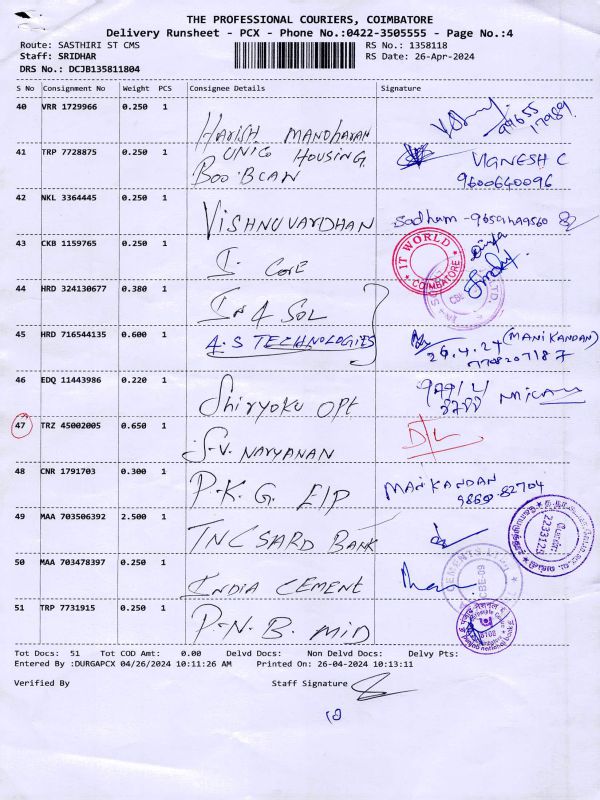 THE PROFESSIONAL COURIERS, COIMBATORE
Delivery Runsheet - PCX - Phone No.:0422-3505555 - Page No.:4
Route: SASTHIRI ST CMS RS No.: 1358118
Staff: SRIDHAR RS Date: 26-Apr-2024
DRS No.: DCJB135811804
S No Consignment No Weight PCS Consignee Details Signature
40 VRR 1729966 0.250 1 HARISH MANOHARAN
41 TRP 7728875 0.250 1 UNIQ HOUSING VIGNESH C
9600640096
42 NKL 3364445 0.250 1 VISHNUVARDHAN
43 CKB 1159765 0.250 1 I. CORE IT WORLD COIMBATORE
44 HRD 324130677 0.380 1
45 HRD 716544135 0.600 1 A.S TECHNOLOGIES 26.4.24 (MANIKANDAN)
46 EDQ 11443986 0.220 1 Shiryoku OPt
47 TRZ 45002005 0.650 1 S.V. NARYANAN D/L
48 CNR 1791703 0.300 1 P.K.G. EIP MANIKANDAN
49 MAA 703506392 2.500 1 TNCSARD BANK 2233125
50 MAA 703478397 0.250 1 INDIA CEMENT
51 TRP 7731915 0.250 1 P.N.B. MID
Tot Docs: 51 Tot COD Amt: 0.00 Delvd Docs: Non Delvd Docs: Delvy Pts:
Entered By :DURGAPCX 04/26/2024 10:11:26 AM Printed On: 26-04-2024 10:13:11
Verified By Staff Signature